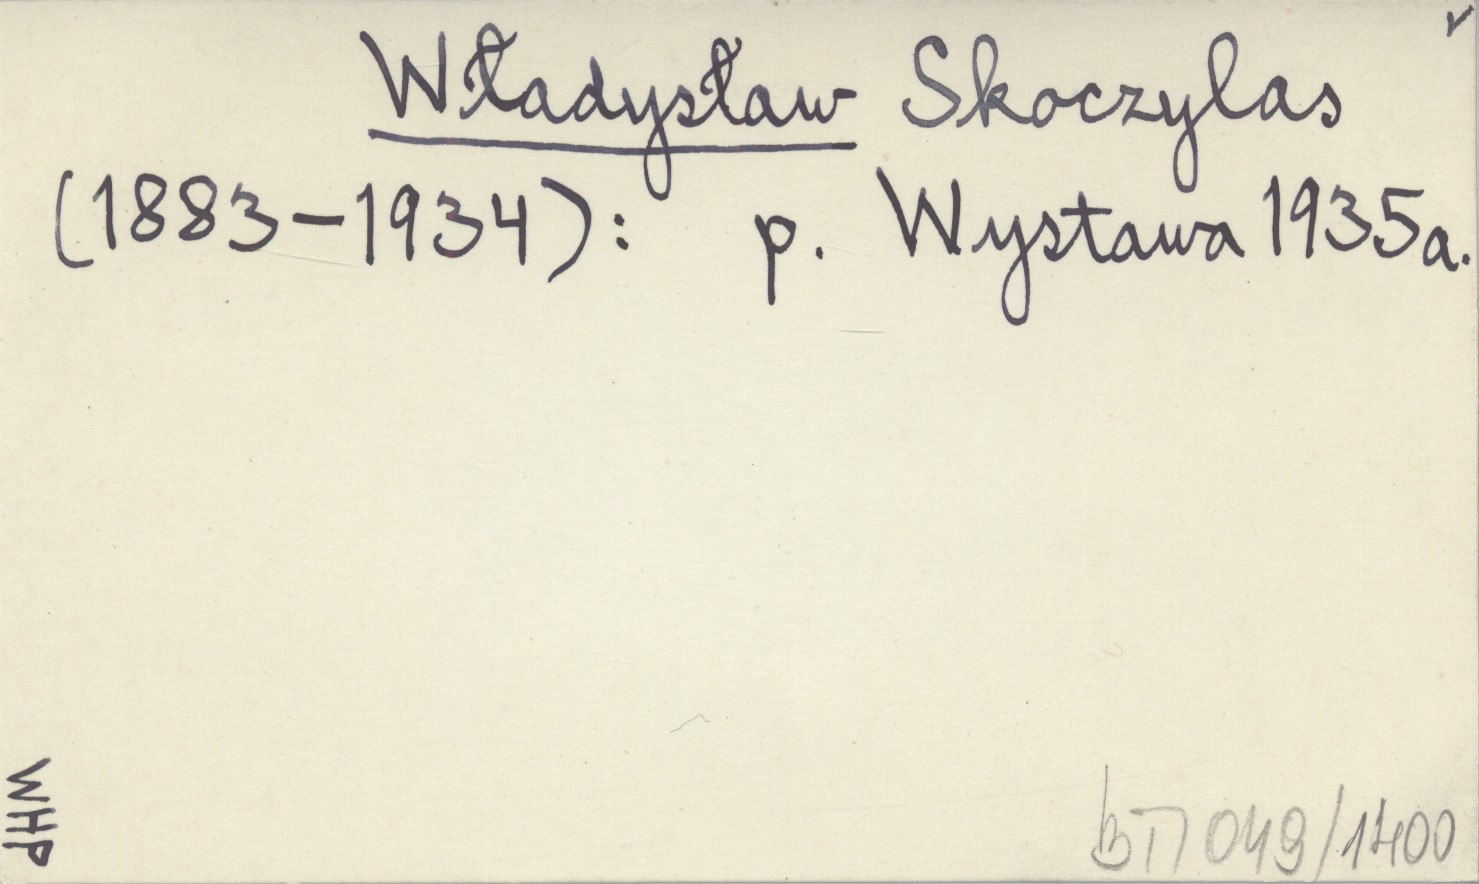 Władysław Skoczylas
(1883-1934): p. Wystawa 1935a.
WHP
049/1400